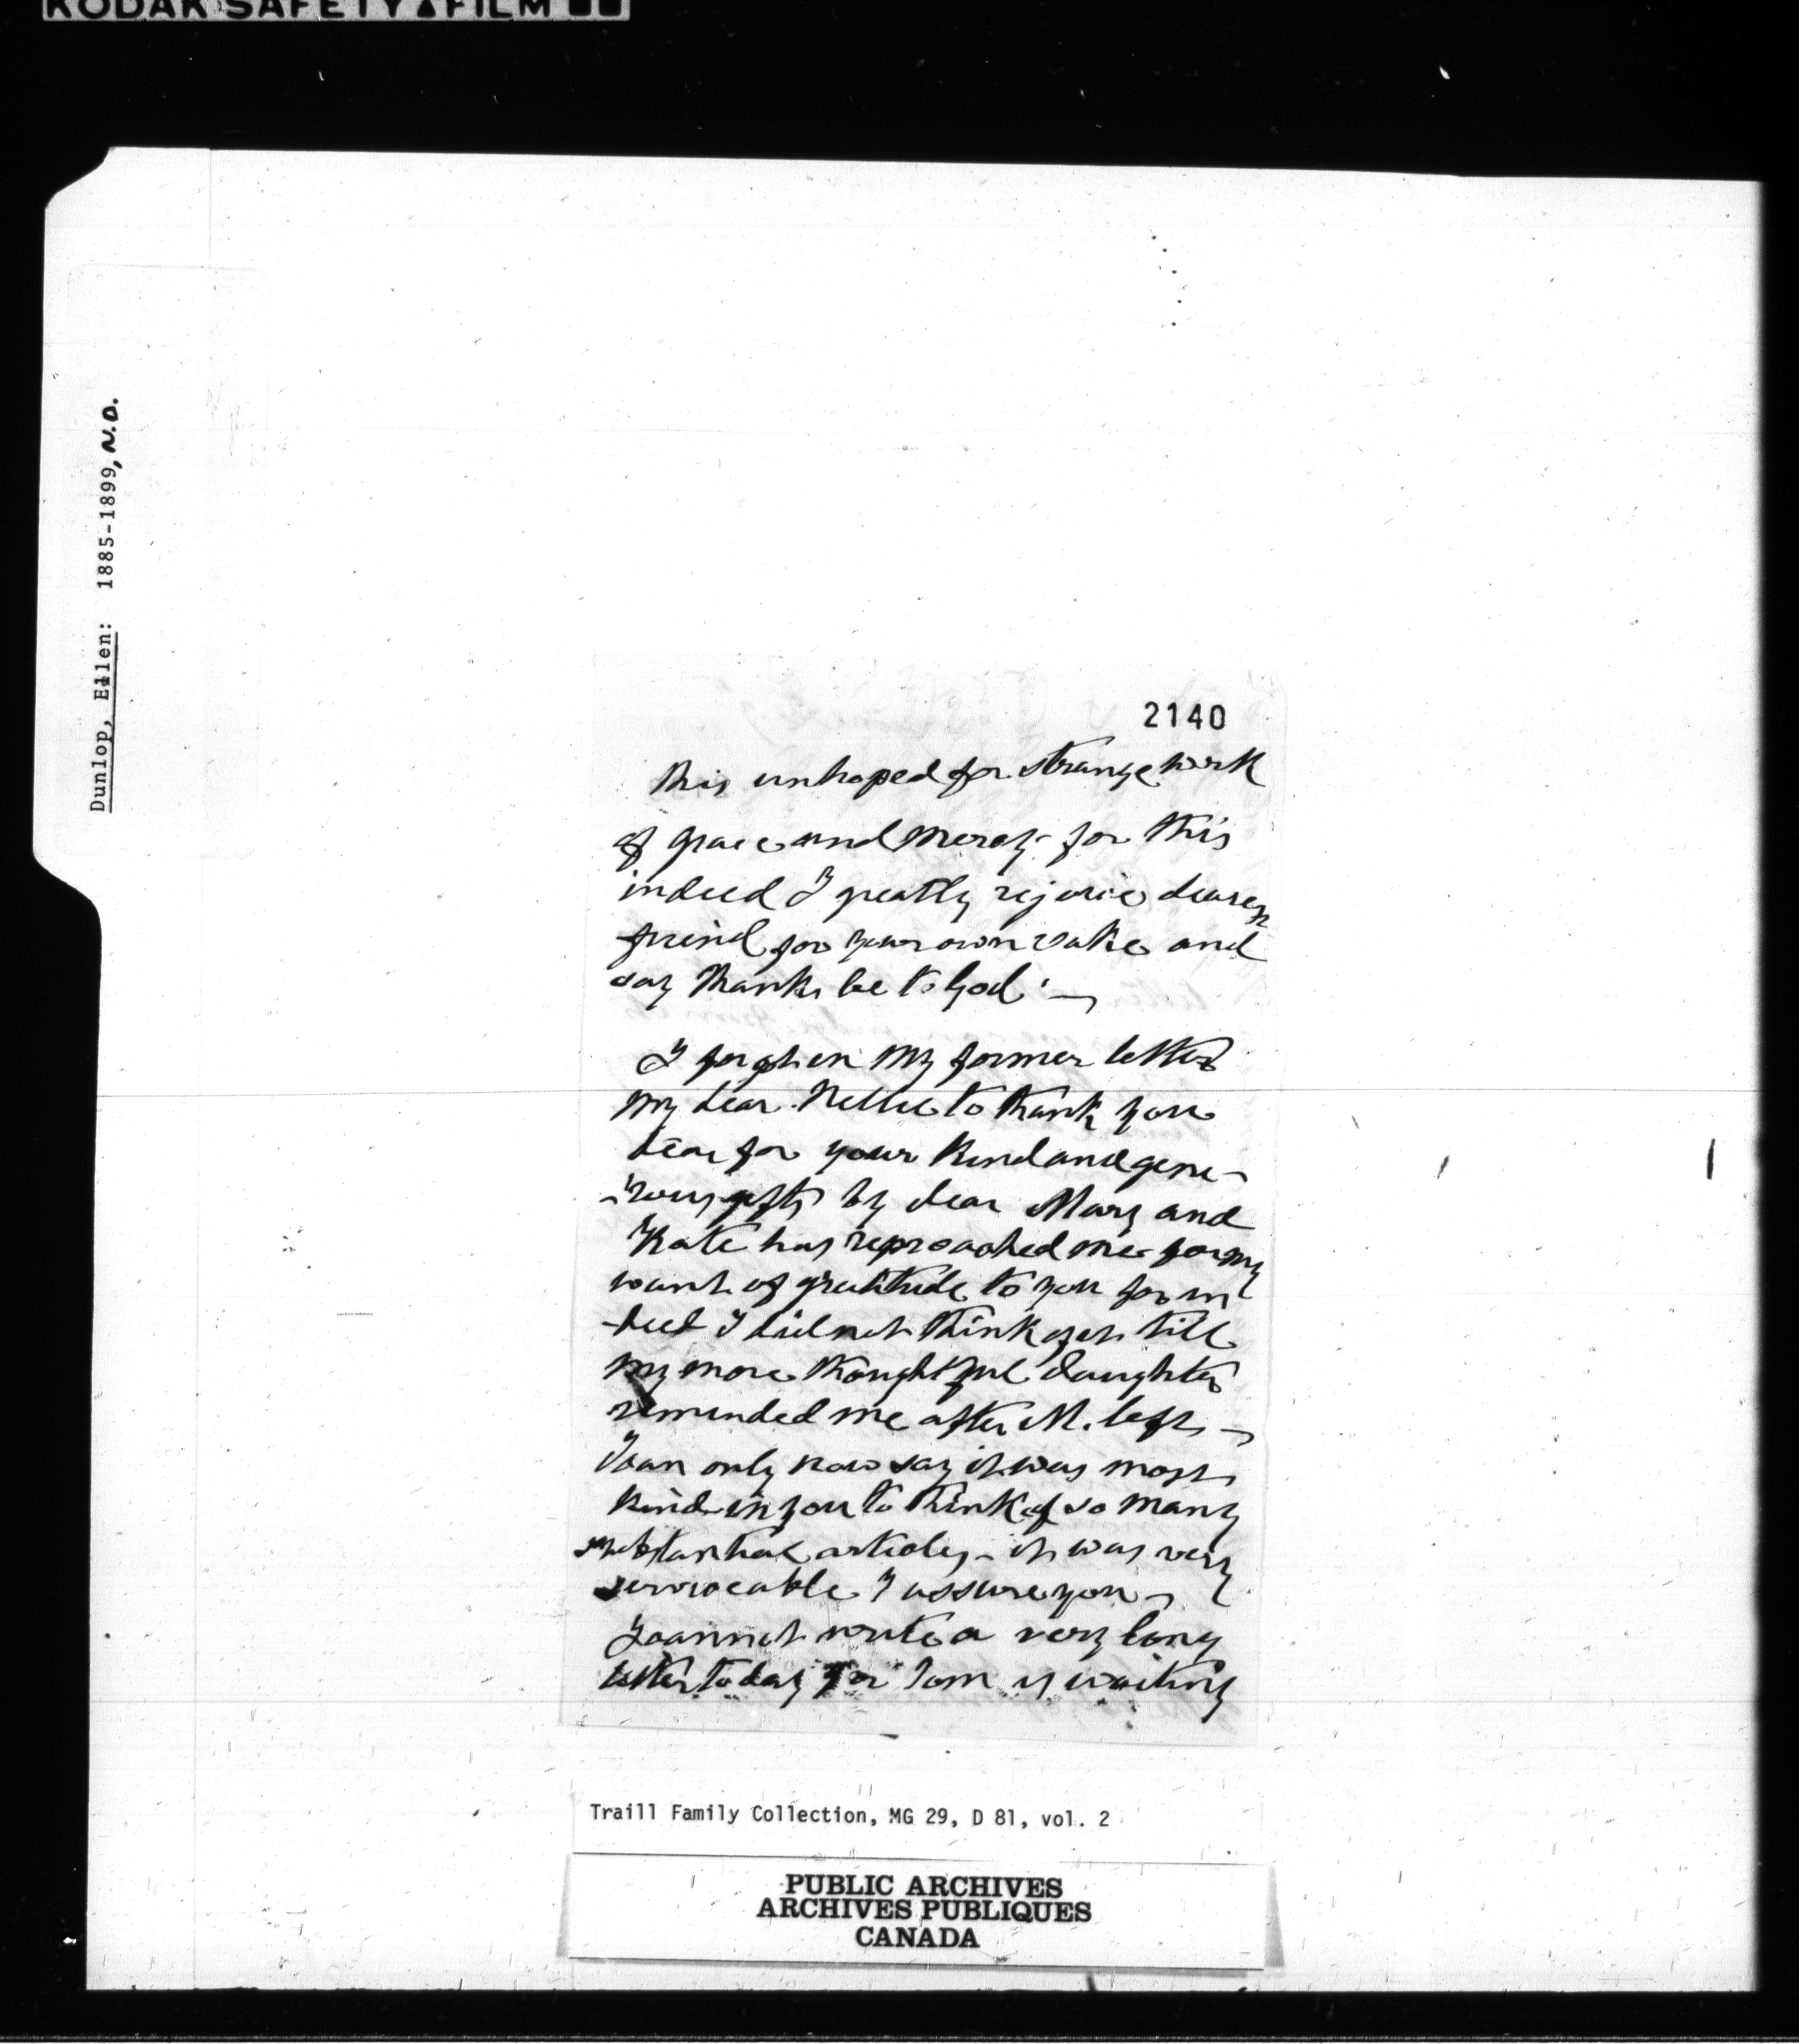 KODAK SAFETY FILM
Dunlop, Ellen: 1885-1899, N.D.
2140
this unhoped for strange work
of grace and mercy - for this
indeed I greatly rejoice dearest
friend for your own sake and
say thanks be to God! —
I forgot in my former letter
my dear Nellie to thank you
dear for your kind and gene-
-rous gifts by dear Mary and
Kate has reproached me for my
want of gratitude to you for in
-deed I did not think of it till
my more thoughtful daughter
reminded me after M. left —
I can only now say it was most
kind in you to think of so many
substantial articles - it was very
serviceable I assure you —
I cannot write a very long
letter today for Tom is waiting
Traill Family Collection, MG 29, D 81, vol. 2
PUBLIC ARCHIVES
ARCHIVES PUBLIQUES
CANADA